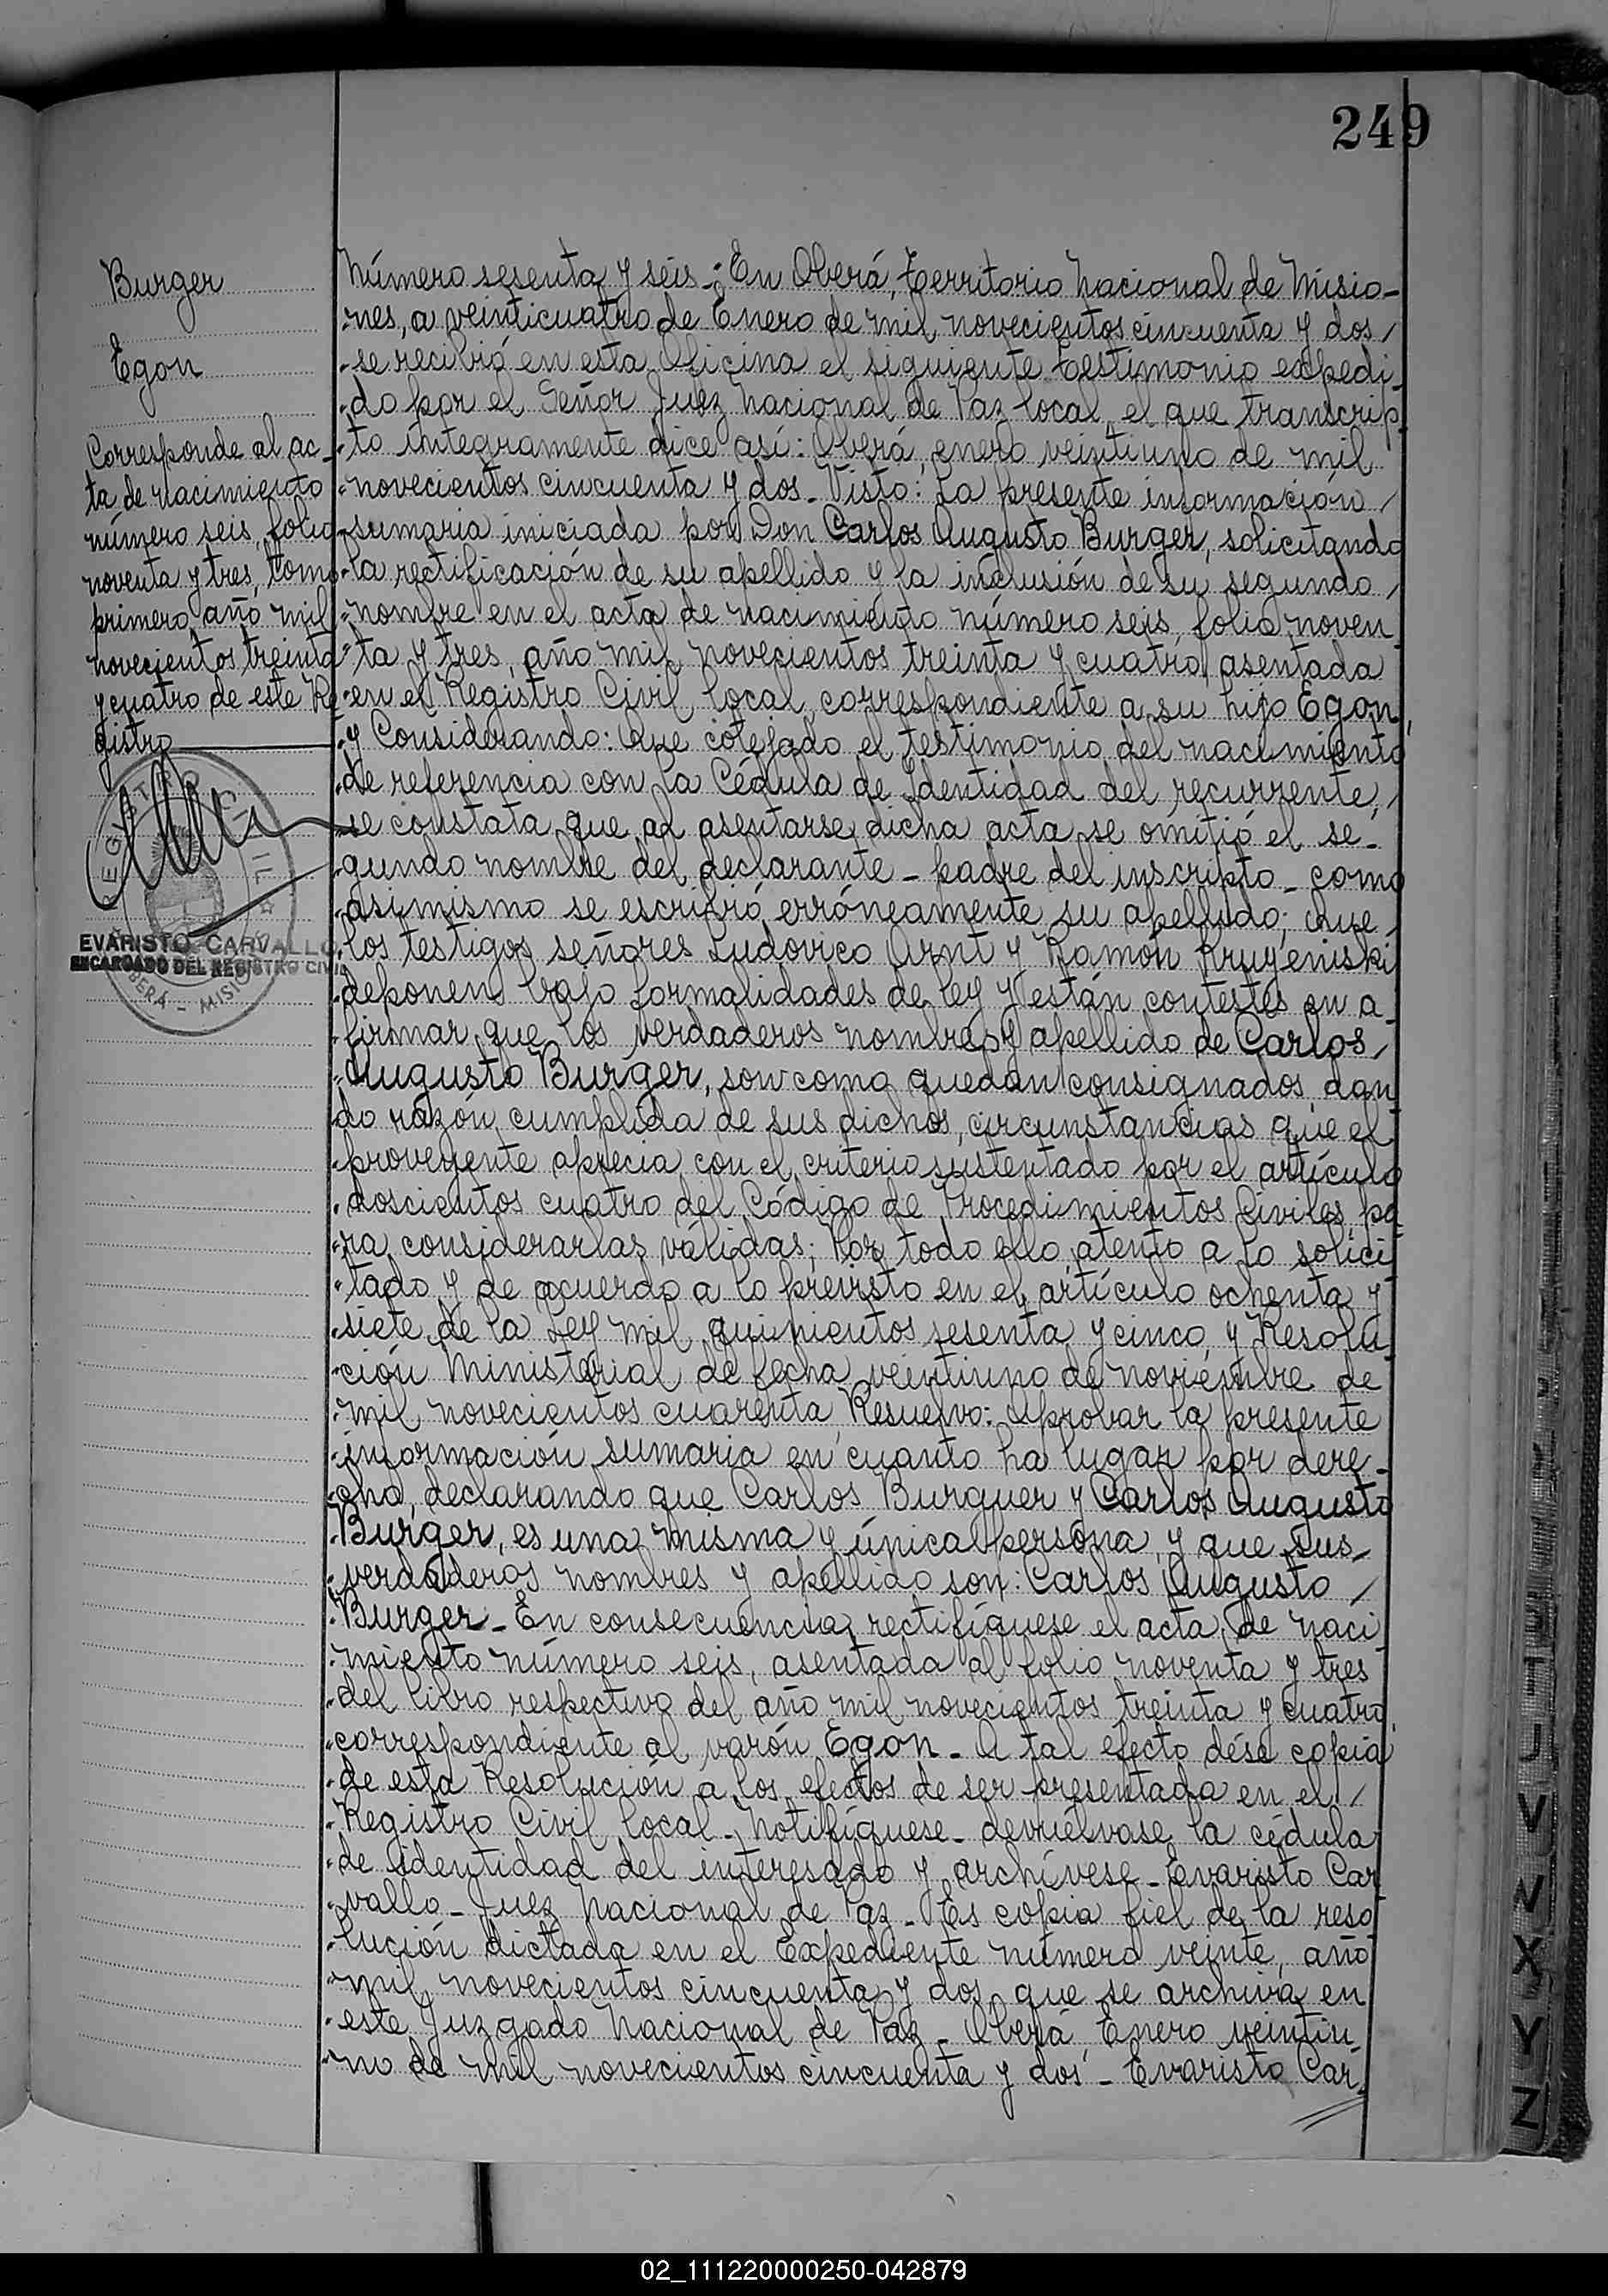 249
Burger
Egon
Corresponde al ac-
ta de nacimiento
número seis, folio
noventa y tres, tomo
primero, año mil
novecientos treinta
y cuatro de este Re
gistro
REGISTRO CIVIL
OBERÁ - MISIONES
EVARISTO CARVALLO
ENCARGADO DEL REGISTRO CIVIL
Número sesenta y seis.: En Oberá, Territorio Nacional de Misio-
nes, a veinticuatro de Enero de mil novecientos cincuenta y dos/
se recibió en esta Oficina el siguiente testimonio expedi-
do por el Señor Juez Nacional de Paz local, el que transcrip
to íntegramente dice así: Oberá, enero veintiuno de mil
novecientos cincuenta y dos- Visto: La presente información/
sumaria iniciada por Don Carlos Augusto Burger, solicitando
la rectificación de su apellido y la inclusión de su segundo/
nombre en el acta de nacimiento número seis, folio noven
ta y tres, año mil novecientos treinta y cuatro, asentada
en el Registro Civil local, correspondiente a su hijo Egon,
y Considerando: Que cotejado el testimonio del nacimiento
de referencia con la Cédula de Identidad del recurrente,/
se constata que al asentarse dicha acta se omitió el se-
gundo nombre del declarante - padre del inscripto - como
asimismo se escribió erróneamente su apellido; Que/
los testigos señores Ludovico Arnt y Ramón Kruyeniski
deponen bajo formalidades de ley y están contestes en a-
firmar que los verdaderos nombres y apellido de Carlos/
Augusto Burger, son como quedan consignados, dan
do razón cumplida de sus dichos, circunstancias que el
proveyente aprecia con el criterio sustentado por el artículo
doscientos cuatro del Código de Procedimientos Civiles pa
ra considerarlas válidas; Por todo ello, atento a lo solici
tado y de acuerdo a lo previsto en el artículo ochenta y
siete de la Ley mil quinientos sesenta y cinco, y Resolu
ción Ministerial de fecha veintiuno de noviembre de
mil novecientos cuarenta, Resuelvo: Aprobar la presente
información sumaria en cuanto ha lugar por dere-
cho, declarando que Carlos Burguer y Carlos Augusto
Burger, es una misma y única persona, y que sus/
verdaderos nombres y apellido son: Carlos Augusto/
Burger- En consecuencia, rectifíquese el acta de naci
miento número seis, asentada al folio noventa y tres
del libro respectivo del año mil novecientos treinta y cuatro,
correspondiente al varón Egon- A tal efecto dése copia
de esta Resolución a los efectos de ser presentada en el/
Registro Civil local- Notifíquese- devuélvase la cédula
de identidad del interesado y archívese- Evaristo Car
vallo- Juez Nacional de Paz- Es copia fiel de la reso
lución dictada en el Expediente número veinte, año
mil novecientos cincuenta y dos, que se archiva en
este Juzgado Nacional de Paz- Oberá, Enero veintiu
no de mil novecientos cincuenta y dos- Evaristo Car
T
J
V
W
X
Y
Z
02_111220000250-042879